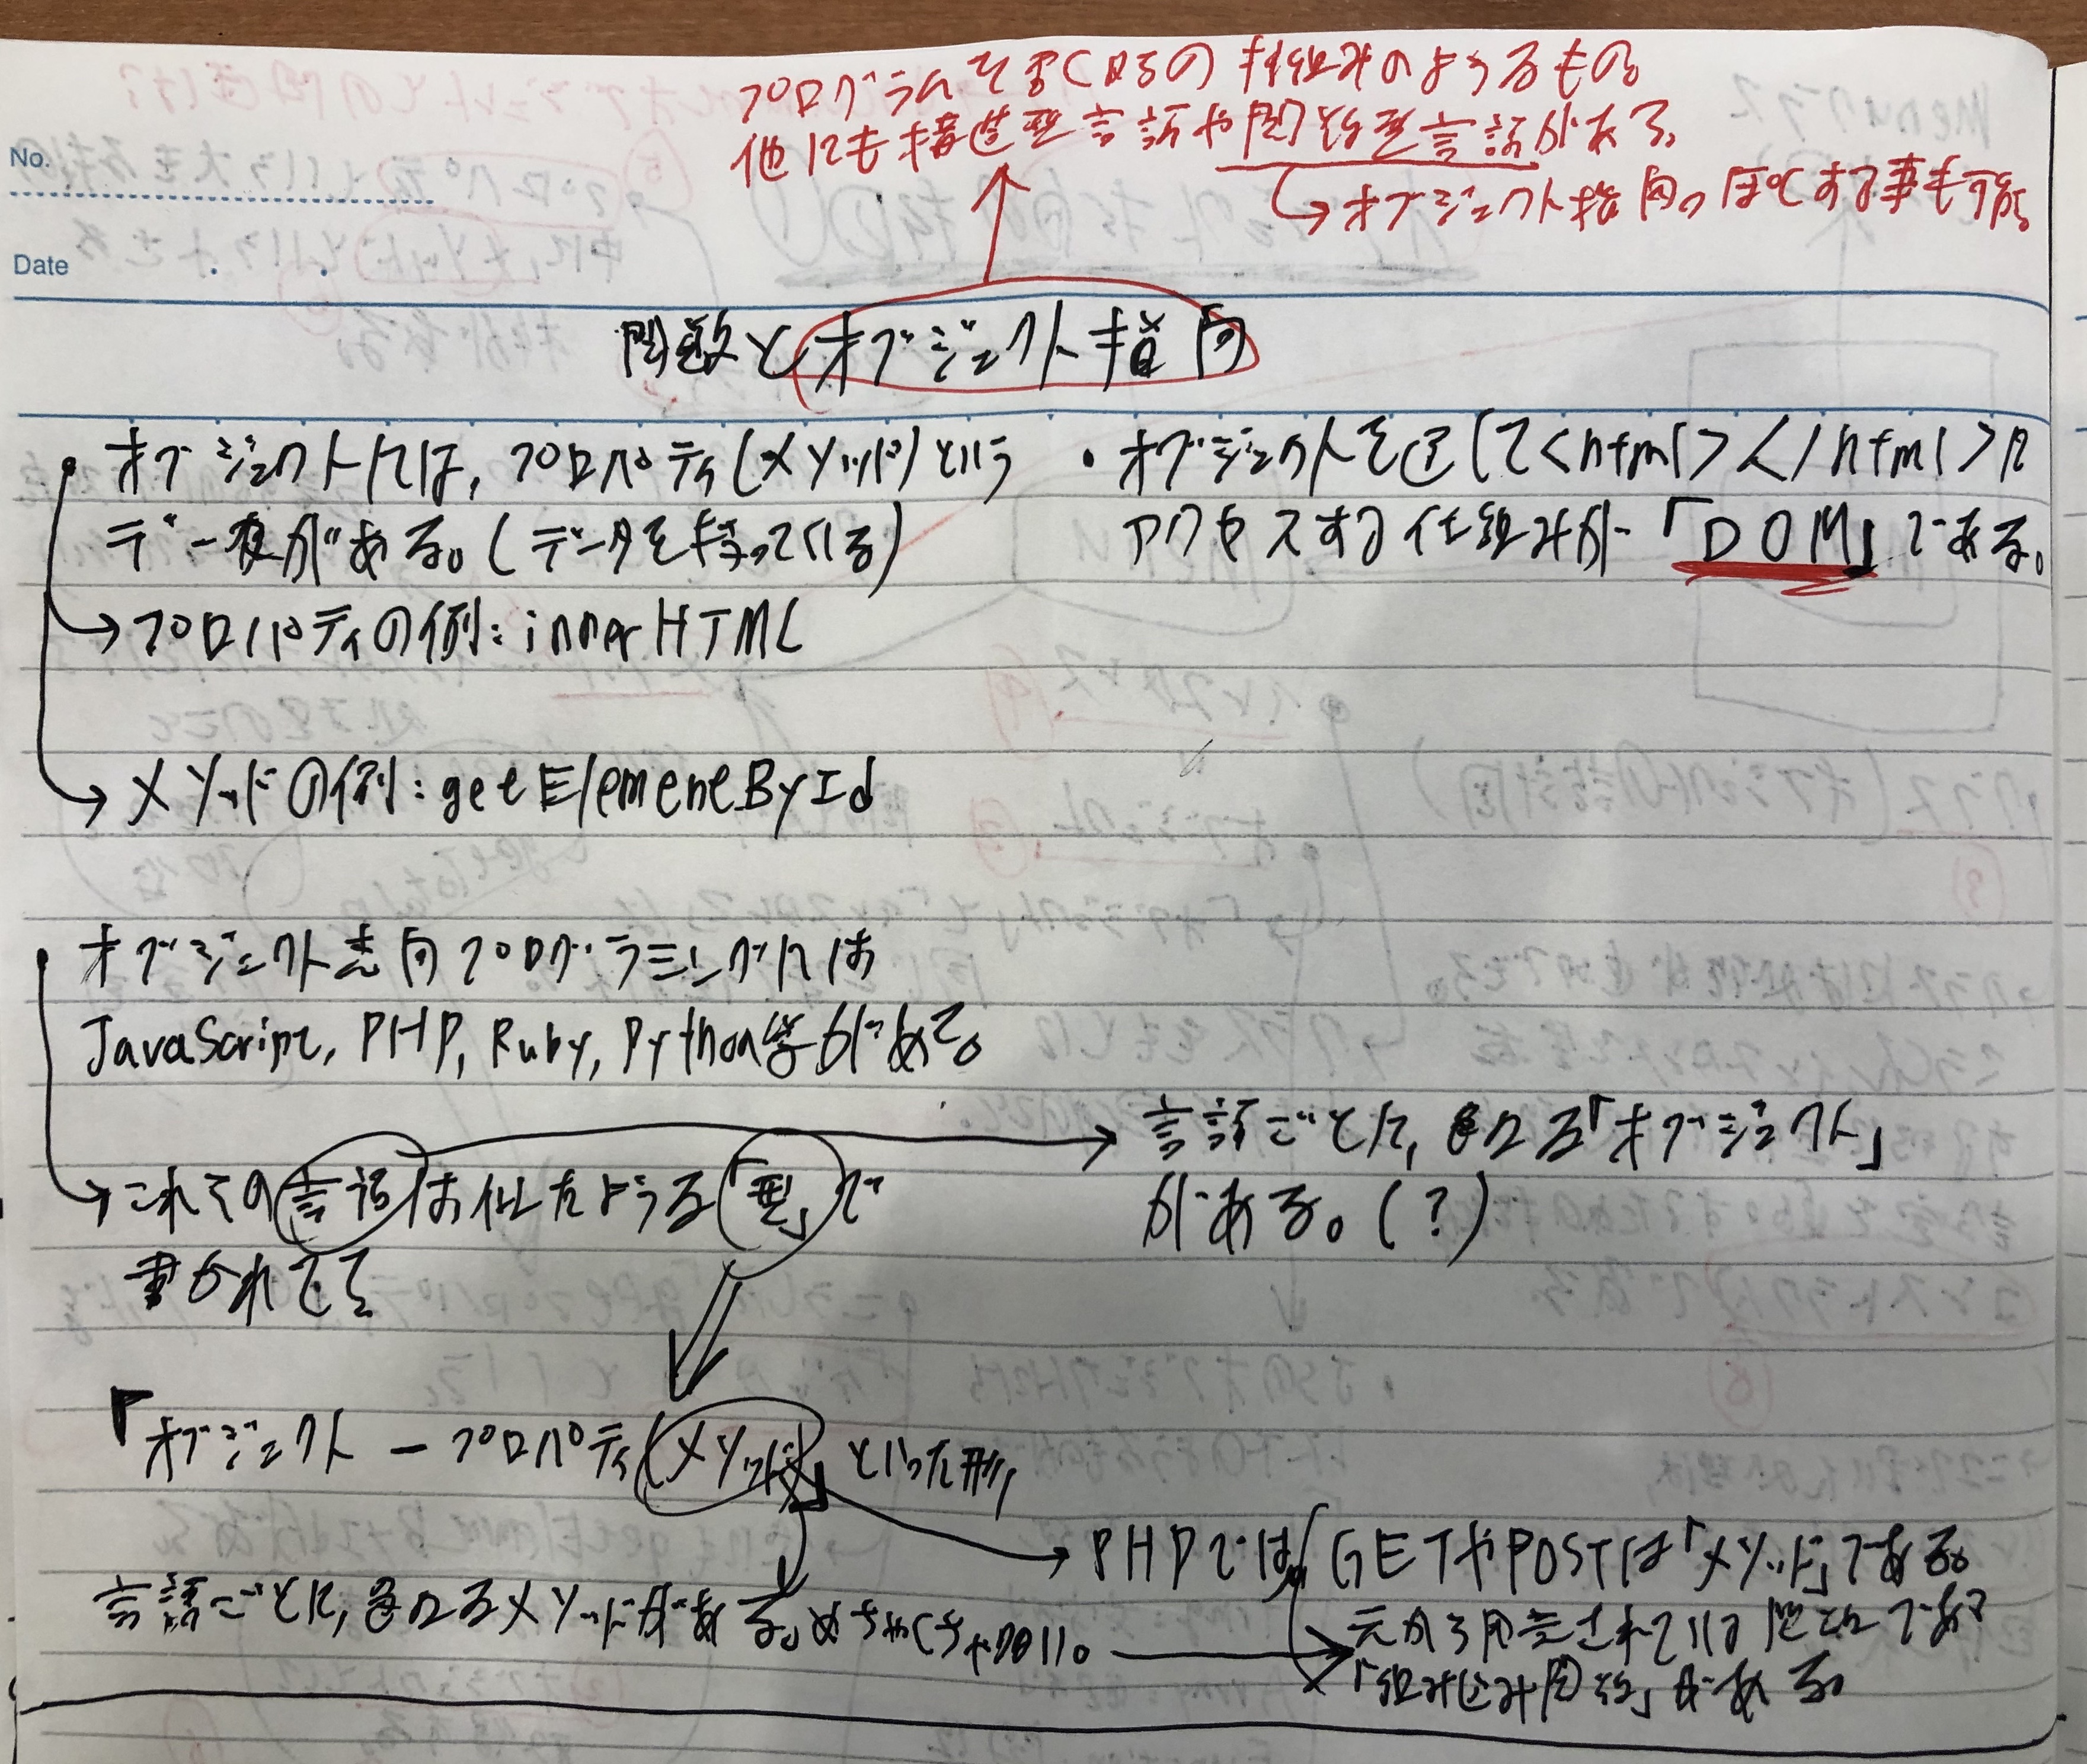 プログラムを書く時の枠組みのようなもの。
他にも構造型言語や関数型言語がある。
→オブジェクト指向っぽくする事も可能
No.
Date
関数とオブジェクト指向
• オブジェクトには、プロパティ(メソッド)という
データがある。(データを持っている)
→プロパティの例：innerHTML
→メソッドの例：getElementById
• オブジェクトを通して<html></html>に
アクセスする仕組みが「DOM」である。
• オブジェクト志向プログラミングには
JavaScript, PHP, Ruby, Python等がある。
→これらの言語は似たような「型」で
書かれてる
→言語ごとに、異なる「オブジェクト」
がある。(？)
「オブジェクト－プロパティ(メソッド)」といった形。
言語ごとに、異なるメソッドがある。めちゃくちゃ多い。
→PHPでは、GETやPOSTは「メソッド」である。
元から用意されている関数である
「組み込み関数」がある。